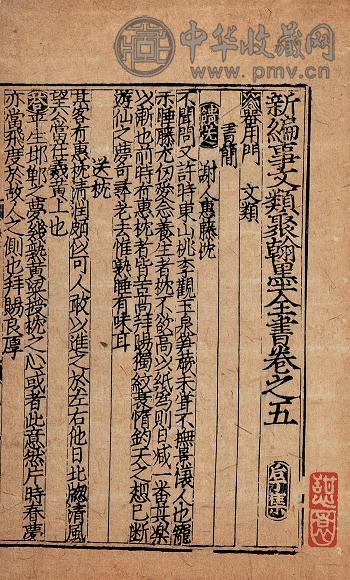 中华收藏网
www.pmv.cn
新編事文類聚翰墨全書卷之五
器用門 文類
書簡
謝人惠藤枕
不聞問又許時東山桃李觀玉泉筍蕨未嘗不撫景懷人也寵
示睡藤尤仞愛念養生者枕不欲高以紙為則日減一番其樂
以漸也前時有惠枕者皆苦高拜賜獨紋妻惰鈞天之想已斷
遊仙之夢可尋老去惟熟睡有味耳
送枕
某客有惠枕清潤頗似可人敢以進之於左右他日比 清風
望人當任羲黃上也
答 生邯鄲之夢幾熟黃 授枕之心或者此意然片時春夢
亦當飛度於故人之側也拜賜良厚